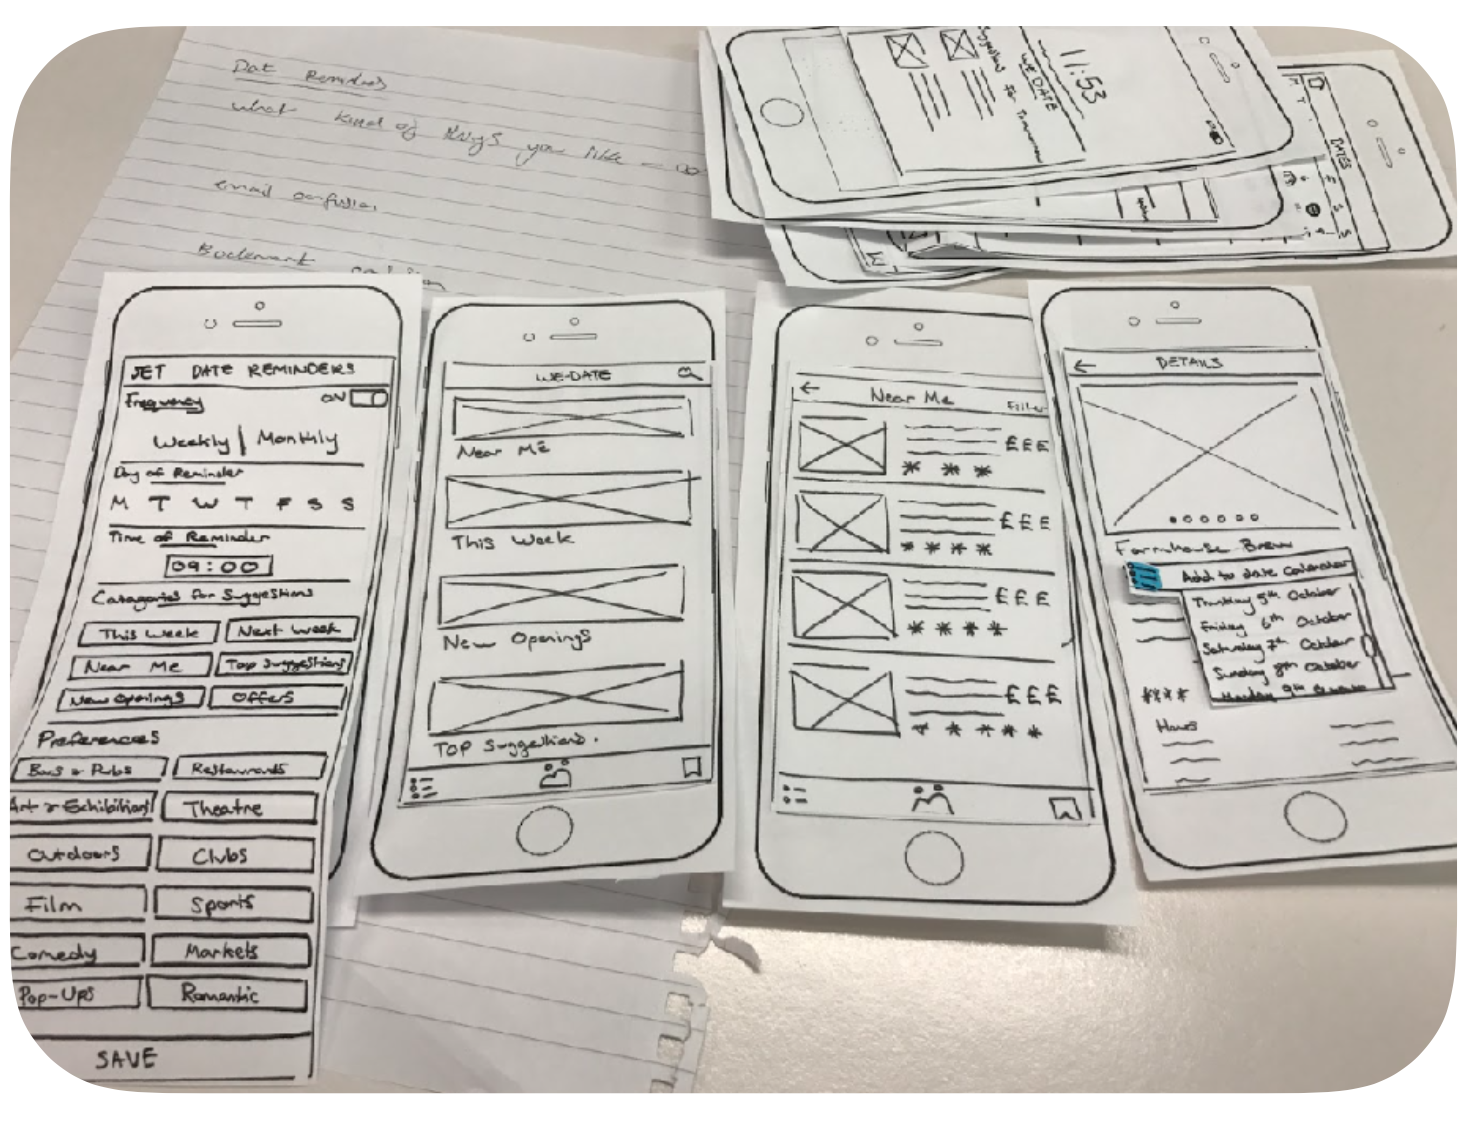 Date Reminders
what kind of things you like -
email confusion
Bookmark confusion
11:53
WE DATE
Suggestions for Tomorrow
DATES
JET DATE REMINDERS
Frequency ON
Weekly | Monthly
Day of Reminder
M T W T F S S
Time of Reminder
09:00
Catagories for Suggestions
This Week Next Week
Near Me Top Suggestions
New Openings OFFERS
Preferences
Bars & Pubs Restaurants
Art & Exhibitions Theatre
Outdoors Clubs
Film Sports
Comedy Markets
Pop-Ups Romantic
SAVE
WE-DATE
Near ME
This Week
New Openings
TOP Suggestions.
Near Me Filter
£££
£££
£££
£££
DETAILS
Farmhouse Brew
Add to date Calendar
Thursday 5th October
Friday 6th October
Saturday 7th October
Sunday 8th October
Monday 9th October
Hours